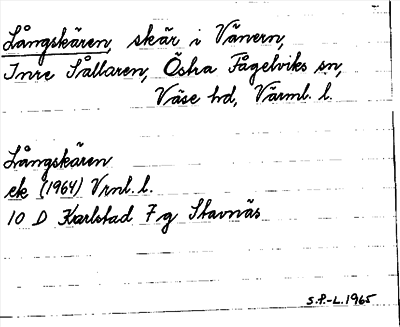 Långskären, skär i Vänern,
Inre Sållaren, Östra Fågelviks sn,
Väse hd, Värml. l.
Långskären
ek (1964) Vrml. l.
10 D Karlstad 7 g Stavnäs
S.P.-L. 1965